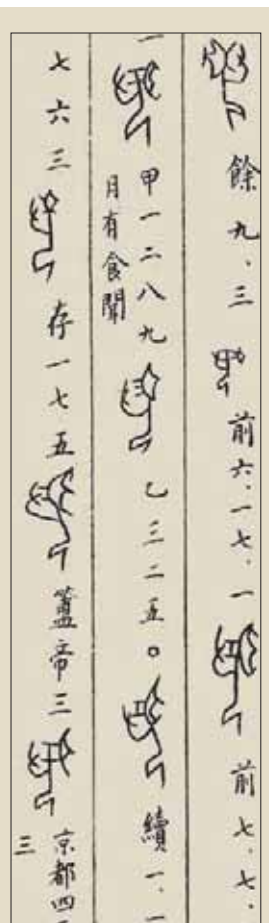 餘九、三 前六、一七、一 前七、七、
一 甲一二八九 月有食聞 乙三二五〇 續一、一
七六三 存一七五 簠帝三 京都四 三